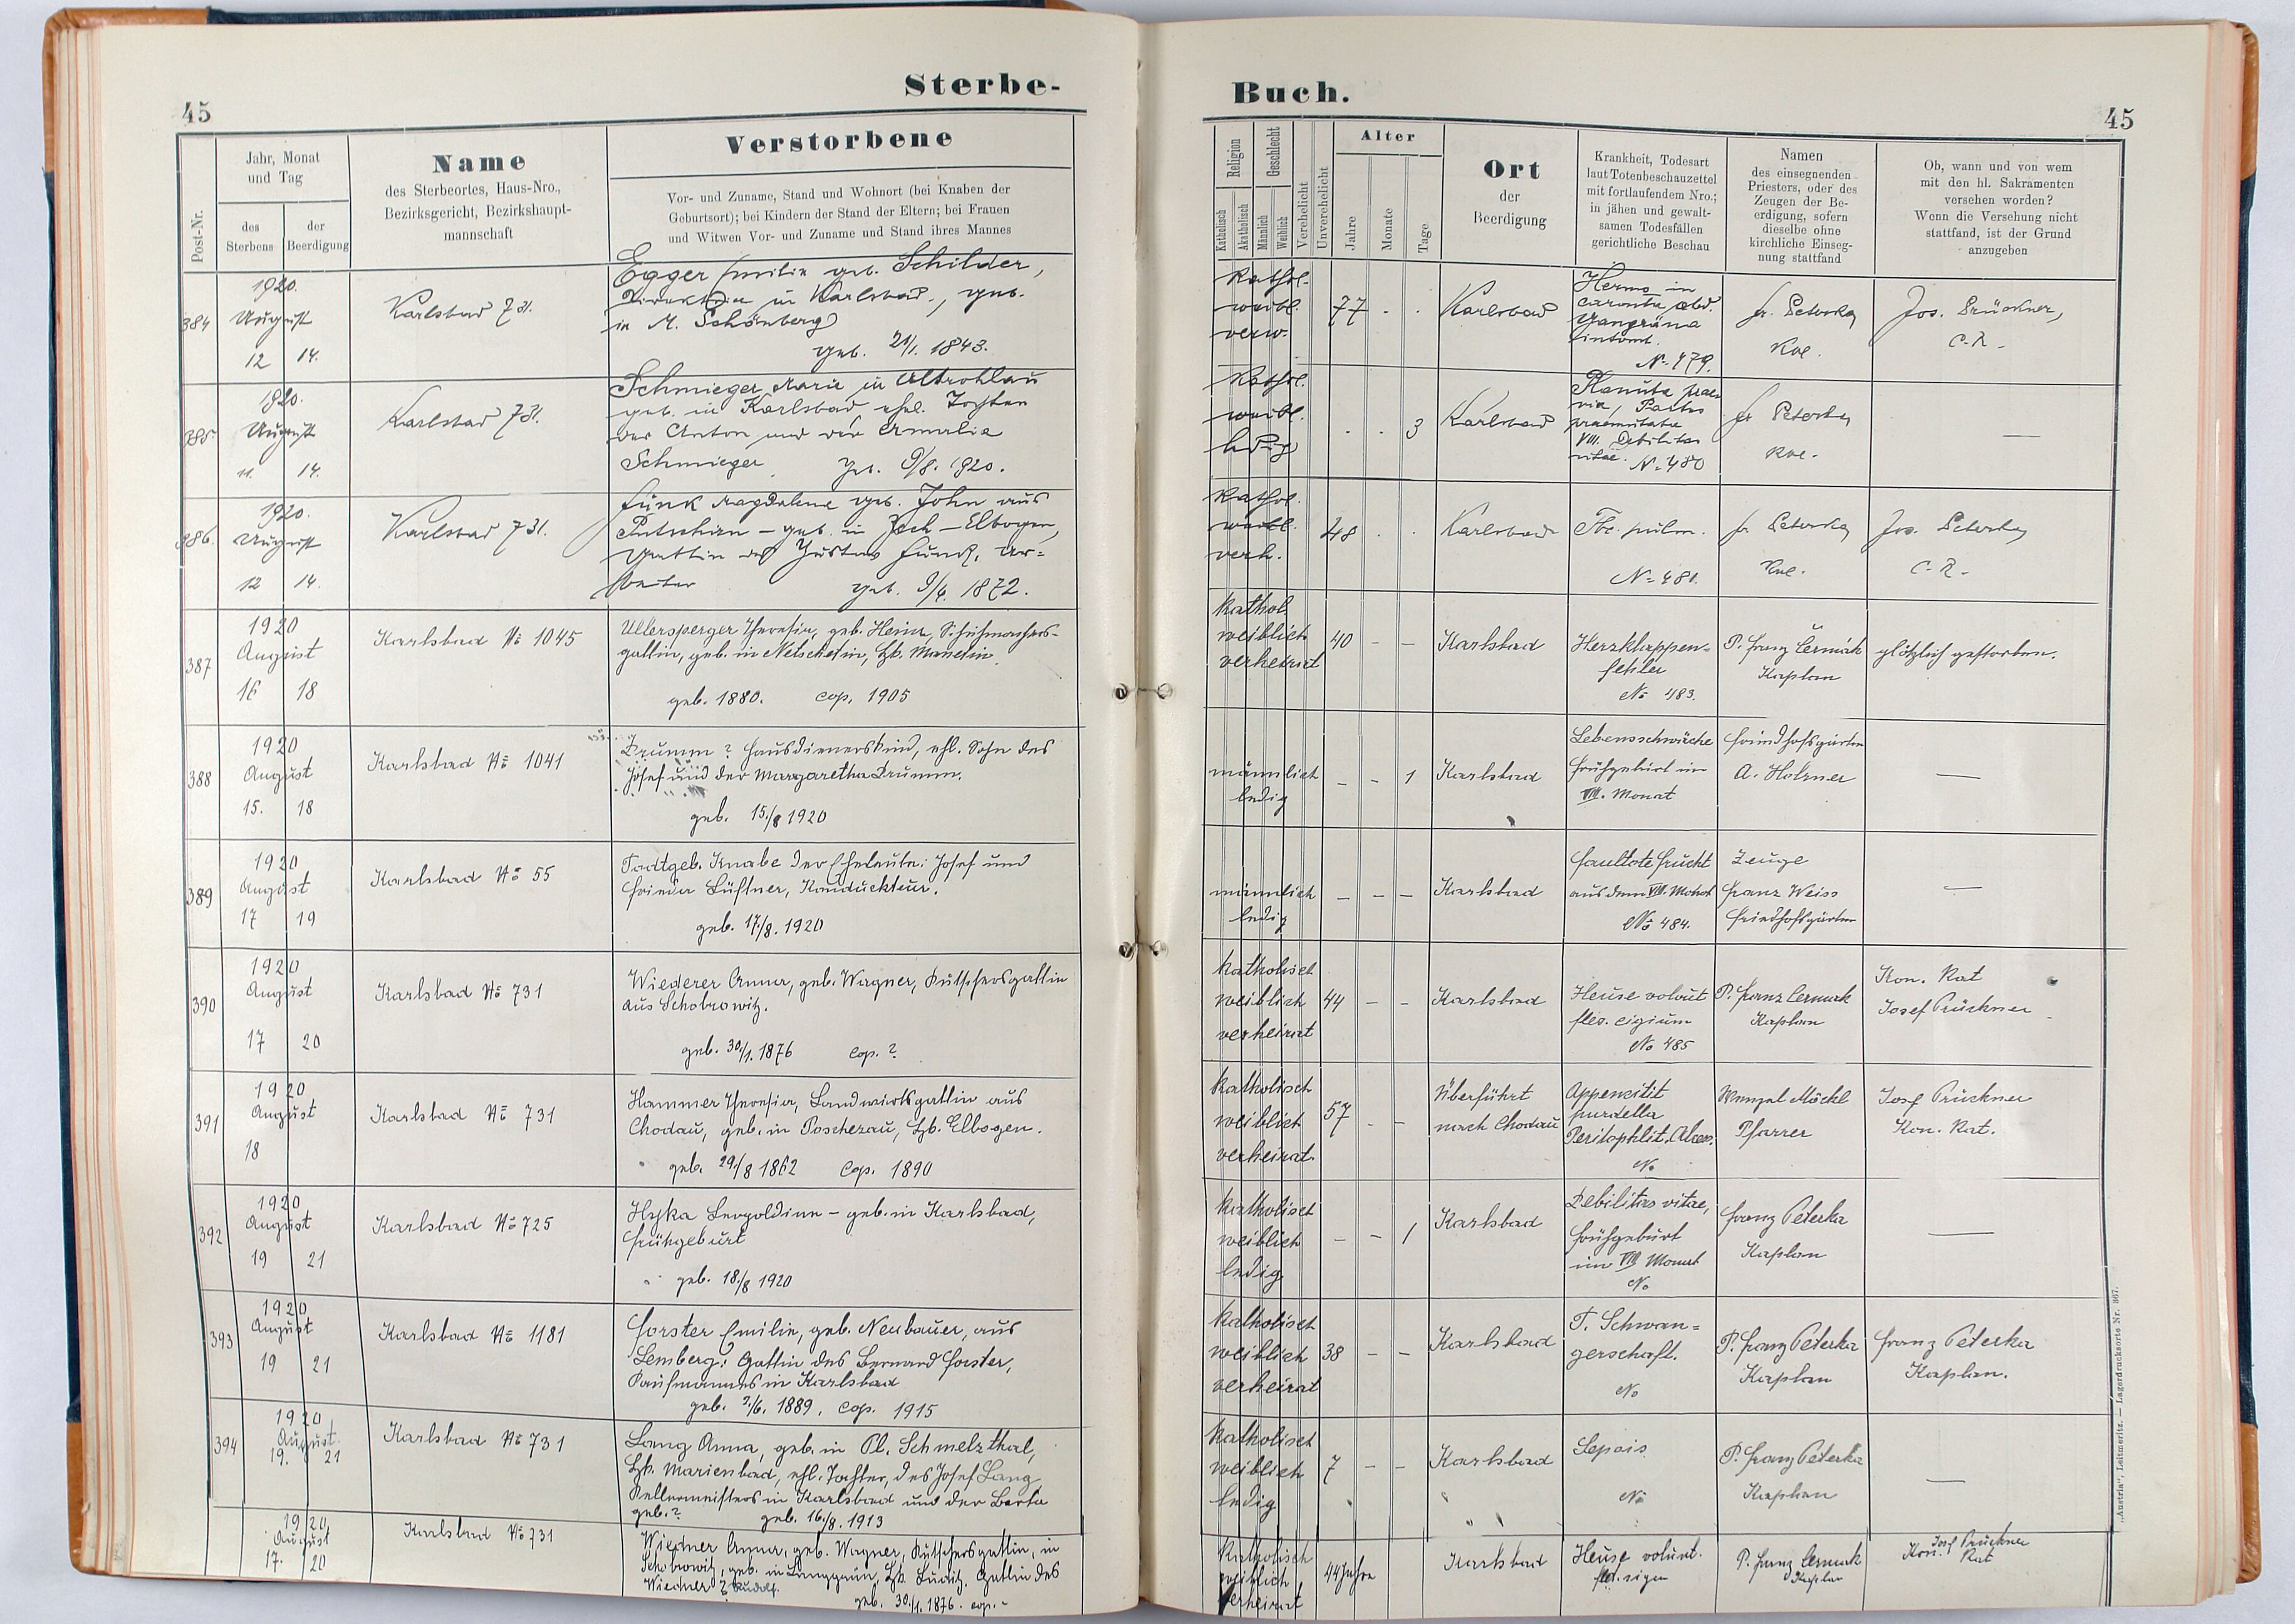 Sterbe-
Buch.
45
45
Post-Nr.
Jahr, Monat
und Tag
des
Sterbens
der
Beerdigung
Name
des Sterbeortes, Haus-Nro.,
Bezirksgericht, Bezirkshaupt-
mannschaft
Verstorbene
Vor- und Zuname, Stand und Wohnort (bei Knaben der
Geburtsort); bei Kindern der Stand der Eltern; bei Frauen
und Witwen Vor- und Zuname und Stand ihres Mannes
Religion
Katholisch
Akatholisch
Geschlecht
Männlich
Weiblich
Verehelicht
Unverehelicht
Alter
Jahre
Monate
Tage
Ort
der
Beerdigung
Krankheit, Todesart
laut Totenbeschauzettel
mit fortlaufendem Nro.;
in jähen und gewalt-
samen Todesfällen
gerichtliche Beschau
Namen
des einsegnenden
Priesters, oder des
Zeugen der Be-
erdigung, sofern
dieselbe ohne
kirchliche Einseg-
nung stattfand
Ob, wann und von wem
mit den hl. Sakramenten
versehen worden?
Wenn die Versehung nicht
stattfand, ist der Grund
anzugeben
384
1920.
August
12 14.
Karlsbad 731.
Egger Emilie geb. Schilder,
in Karlsbad, geb.
in M. Schönberg
geb. 21/1. 1843.
kathol.
weibl.
verw.
77 - -
Karlsbad
N. 479.
fr. Peterka
Jos. Brückner,
C.R.
385
1920.
August
11. 14.
Karlsbad 731.
Schmieger Marie in Altrohlau
geb. in Karlsbad, ehel. Tochter
des Anton und der Amalia
Schmieger. geb. 9/8. 1920.
kathol.
weibl.
ledig
- - 3
Karlsbad
Placenta prae-
via, Partus
praematurus
VIII. Debilitas
vitae. N. 480
fr. Peterka
—
386.
1920.
August
12 14.
Karlsbad 731.
Funk Magdalena geb. John aus
Putschirn – geb. in Zech – Elbogen,
Gattin des Gustav Funk, Ar=
beiter geb. 9/4. 1872.
kathol.
weibl.
verh.
48 - -
Karlsbad
Tbc. pulm.
N. 481.
fr. Peterka
Jos. Peterka
C.R.
387
1920
August
16 18
Karlsbad No 1045
Ullersperger Theresia, geb. Heim, Schuhmachers-
gattin, geb. in Netschetin, Bzk. Manetin.
geb. 1880. cop. 1905
kathol.
weiblich
verheirat
40 - -
Karlsbad
Herzklappen=
fehler
No 483.
P. Franz Čermák
Kaplan
plötzlich gestorben.
388
1920
August
15. 18
Karlsbad No 1041
Drumm ? Hausdienerskind, ehl. Sohn des
Josef und der Margaretha Drumm.
geb. 15./8 1920
männlich
ledig
- - 1
Karlsbad
Lebensschwäche
Frühgeburt im
VIII. Monat
Friedhofsgärtner
A. Holzner
—
389
1920
August
17 19
Karlsbad No 55
Todtgeb. Knabe der Eheleute: Josef und
Frieda Lüftner, Kondukteur.
geb. 17./8. 1920
männlich
ledig
- - -
Karlsbad
faultote Frucht
aus dem VIII. Monat
No 484.
Zeuge
Franz Weiss
Friedhofsgärtner
—
390
1920
August
17 20
Karlsbad No 731
Wiederer Anna, geb. Wagner, Kutschersgattin
aus Schobrowitz.
geb. 30./1. 1876 cop. ?
katholisch
weiblich
verheirat
44 - -
Karlsbad
No 485
P. Franz Cermak
Kaplan
Kon. Rat
Josef Prückner
391
1920
August
18
Karlsbad No 731
Hammer Theresia, Landwirtsgattin aus
Chodau, geb. in Poschezau, Bzk. Elbogen.
geb. 29./8 1862 cop. 1890
katholisch
weiblich
verheirat.
57 - -
Überführt
nach Chodau
No
Wenzel Möckl
Pfarrer
Josef Prückner
Kon. Rat.
392
1920
August
19 21
Karlsbad No 725
Hyka Leopoldine – geb. in Karlsbad,
Frühgeburt
geb. 18./8 1920
katholisch
weiblich
ledig
- - 1
Karlsbad
Debilitas vitae,
Frühgeburt
im VIII Monat
No
Franz Peterka
Kaplan
—
393
1920
August
19 21
Karlsbad No 1181
Forster Emilie, geb. Neubauer, aus
Lemberg: Gattin des Bernard Forster,
Kaufmannes in Karlsbad
geb. 3./6. 1889. cop. 1915
katholisch
weiblich
verheirat
38 - -
Karlsbad
T. Schwan=
gerschaft.
No
P. Franz Peterka
Kaplan
Franz Peterka
Kaplan.
394
1920
August.
19. 21
Karlsbad No 731
Lang Anna, geb. in Pl. Schmelzthal,
Bzk. Marienbad, ehl. Tochter, des Josef Lang
Kellermeisters in Karlsbad und der Berta
geb.? geb. 16./8. 1913
katholisch
weiblich
ledig
7 - -
Karlsbad
Sepsis
No
P. Franz Peterka
Kaplan
—
1920
August
17. 20
Karlsbad No 731
Wiedner Anna, geb. Wagner, Kutschersgattin, in
Schobrowitz, geb. in Langgrün, Bzk. Luditz, Gattin des
Wiedner ? Rudolf.
geb. 30./1. 1876. cop. -
katholisch
weiblich
verheirat
44 Jahre
Karlsbad
P. Franz Cermak
Kaplan
Josef Prückner
Kon. Rat
„Austria“, Leitmeritz. — Lagerdrucksorte Nr. 367.